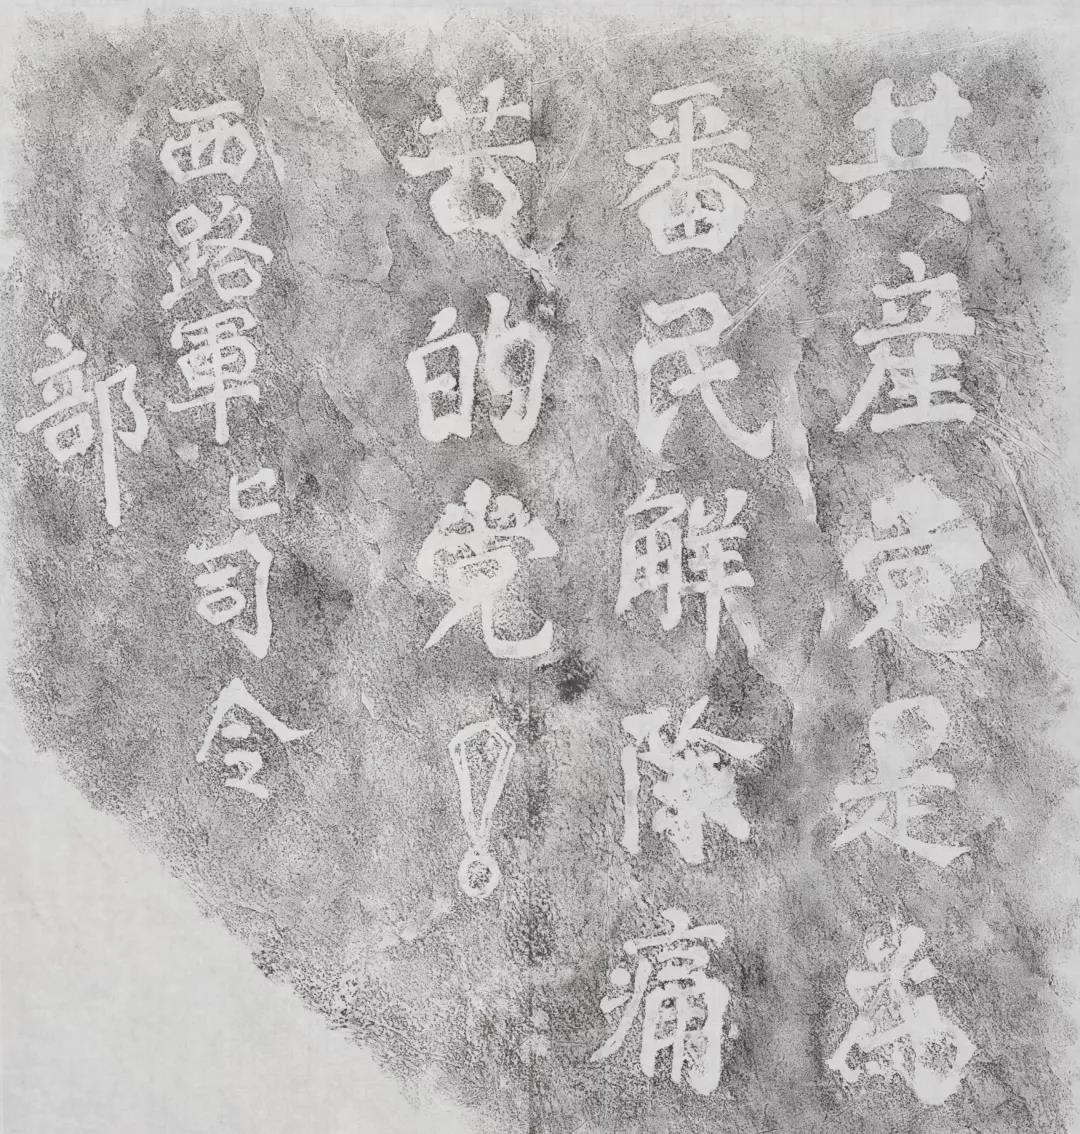 共產党是為
番民解除痛
苦的党！
西路軍司令
部